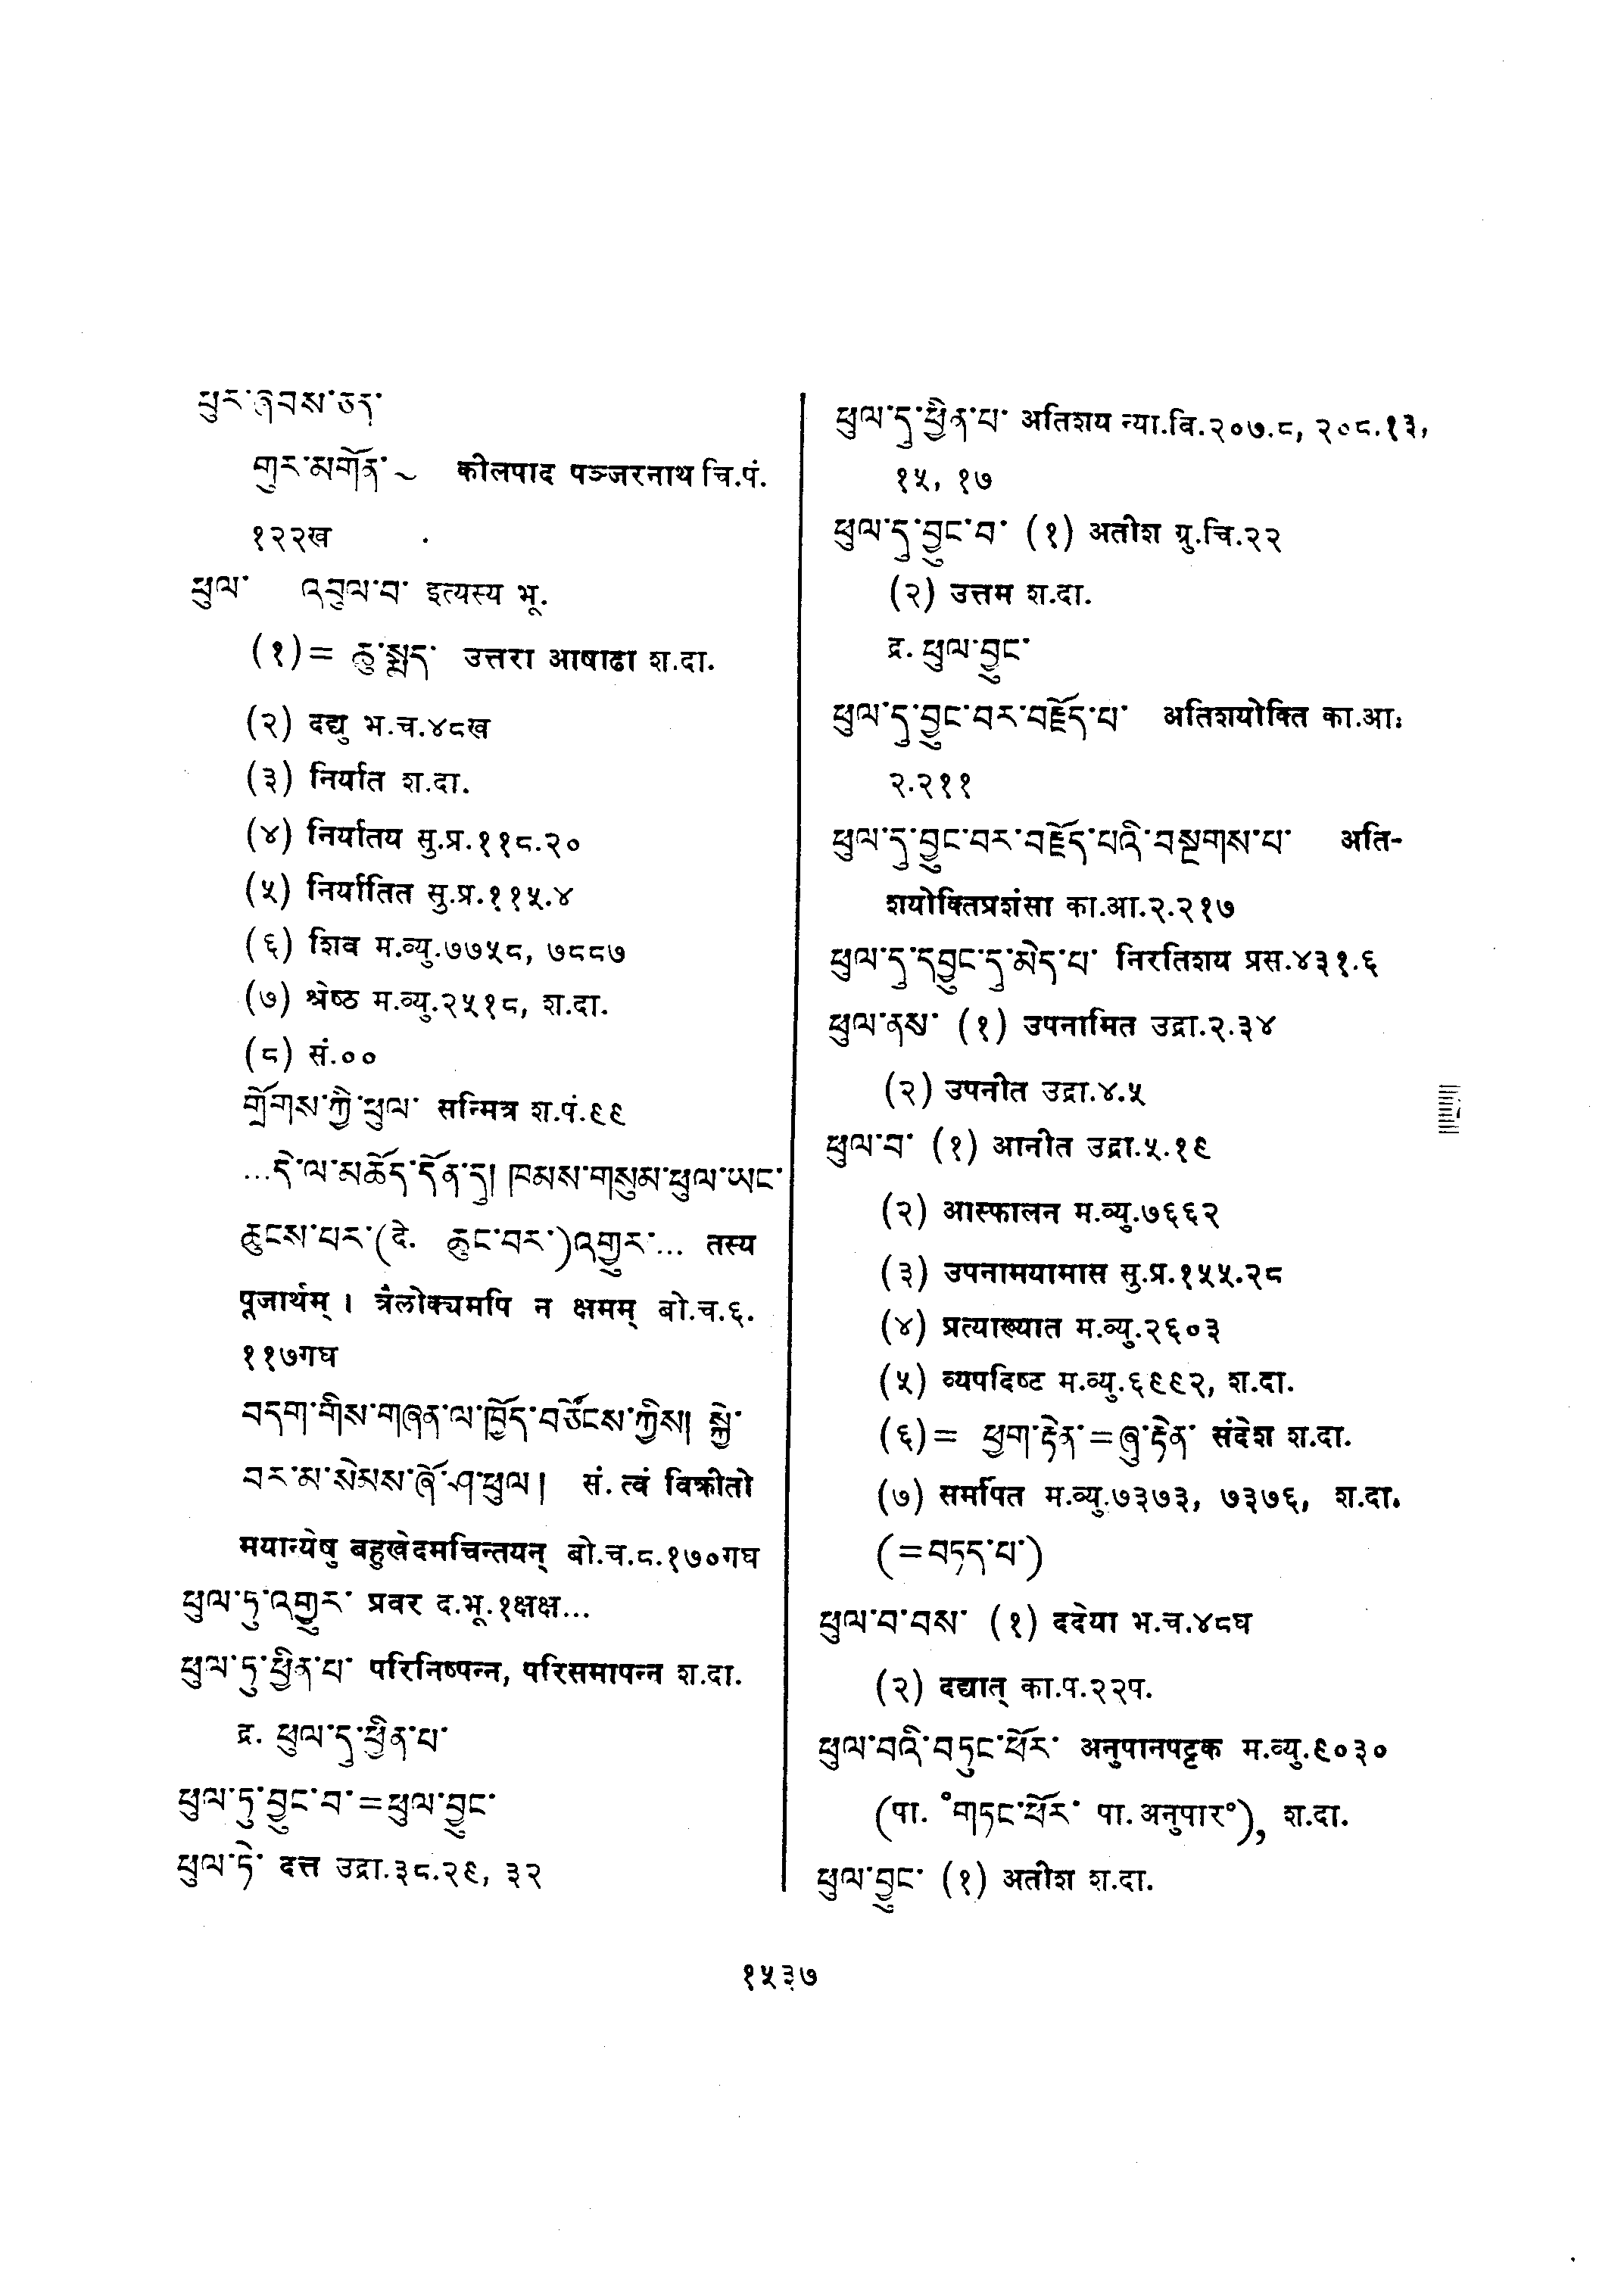 ཕུར་ཞབས་ཅན་
གུར་མགོན་~ कीलपाद पञ्जरनाथ चि.पं.
१२२ख
ཕུལ་ འབུལ་བ་ इत्यस्य भू.
(१)= ཆུ་སྨད་ उत्तरा आषाढा श.दा.
(२) दद्यु भ.च.४८ख
(३) निर्यात श.दा.
(४) निर्यातय सु.प्र.११८.२०
(५) निर्यातित सु.प्र.११५.४
(६) शिव म.व्यु.७७५८, ७८८७
(७) श्रेष्ठ म.व्यु.२५१८, श.दा.
(८) सं.००
གྲོགས་ཀྱི་ཕུལ་ सन्मित्र श.पं.९९
...དེ་ལ་མཆོད་དོན་དུ། ཁམས་གསུམ་ཕུལ་ཡང་
ཆུངས་པར་(दे. ཆུང་བར་)འགྱུར་... तस्य
पूजार्थम् । त्रैलोक्यमपि न क्षमम् बो.च.६.
११७गघ
བདག་གིས་གཞན་ལ་ཁྱོད་བཙོངས་ཀྱིས། སྐྱེ་
བར་མ་སེམས་ཞོ་ཤ་ཕུལ། सं. त्वं विक्रीतो
मयान्येषु बहुखेदमचिन्तयन् बो.च.८.१७०गघ
ཕུལ་ཏུ་འགྱུར་ प्रवर द.भू.१क्षक्ष...
ཕུལ་ཏུ་ཕྱིན་པ་ परिनिष्पन्न, परिसमापन्न श.दा.
द्र. ཕུལ་དུ་ཕྱིན་པ་
ཕུལ་ཏུ་བྱུང་བ་=ཕུལ་བྱུང་
ཕུལ་ཏེ་ दत्त उद्रा.३८.२९, ३२
ཕུལ་དུ་ཕྱིན་པ་ अतिशय न्या.वि.२०७.८, २०८.१३,
१५, १७
ཕུལ་དུ་བྱུང་བ་ (१) अतीश ग्रु.चि.२२
(२) उत्तम श.दा.
द्र. ཕུལ་བྱུང་
ཕུལ་དུ་བྱུང་བར་བརྗོད་པ་ अतिशयोक्ति का.आ.
२.२११
ཕུལ་དུ་བྱུང་བར་བརྗོད་པའི་བསྔགས་པ་ अति-
शयोक्तिप्रशंसा का.आ.२.२१७
ཕུལ་དུ་དབྱུང་དུ་མེད་པ་ निरतिशय प्रस.४३१.६
ཕུལ་ནས་ (१) उपनामित उद्रा.२.३४
(२) उपनीत उद्रा.४.५
ཕུལ་བ་ (१) आनीत उद्रा.५.१९
(२) आस्फालन म.व्यु.७६६२
(३) उपनामयामास सु.प्र.१५५.२८
(४) प्रत्याख्यात म.व्यु.२६०३
(५) व्यपदिष्ट म.व्यु.६९९२, श.दा.
(६)= ཕྱག་རྟེན་=ཞུ་རྟེན་ संदेश श.दा.
(७) समर्पित म.व्यु.७३७३, ७३७६, श.दा.
(=བཏད་པ་)
ཕུལ་བ་བས་ (१) ददेया भ.च.४८घ
(२) दद्यात् का.प.२२प.
ཕུལ་བའི་བཏུང་ཕོར་ अनुपानपट्टक म.व्यु.९०३०
(पा. °གཏང་ཕོར་ पा. अनुपार°), श.दा.
ཕུལ་བྱུང་ (१) अतीश श.दा.
१५३७